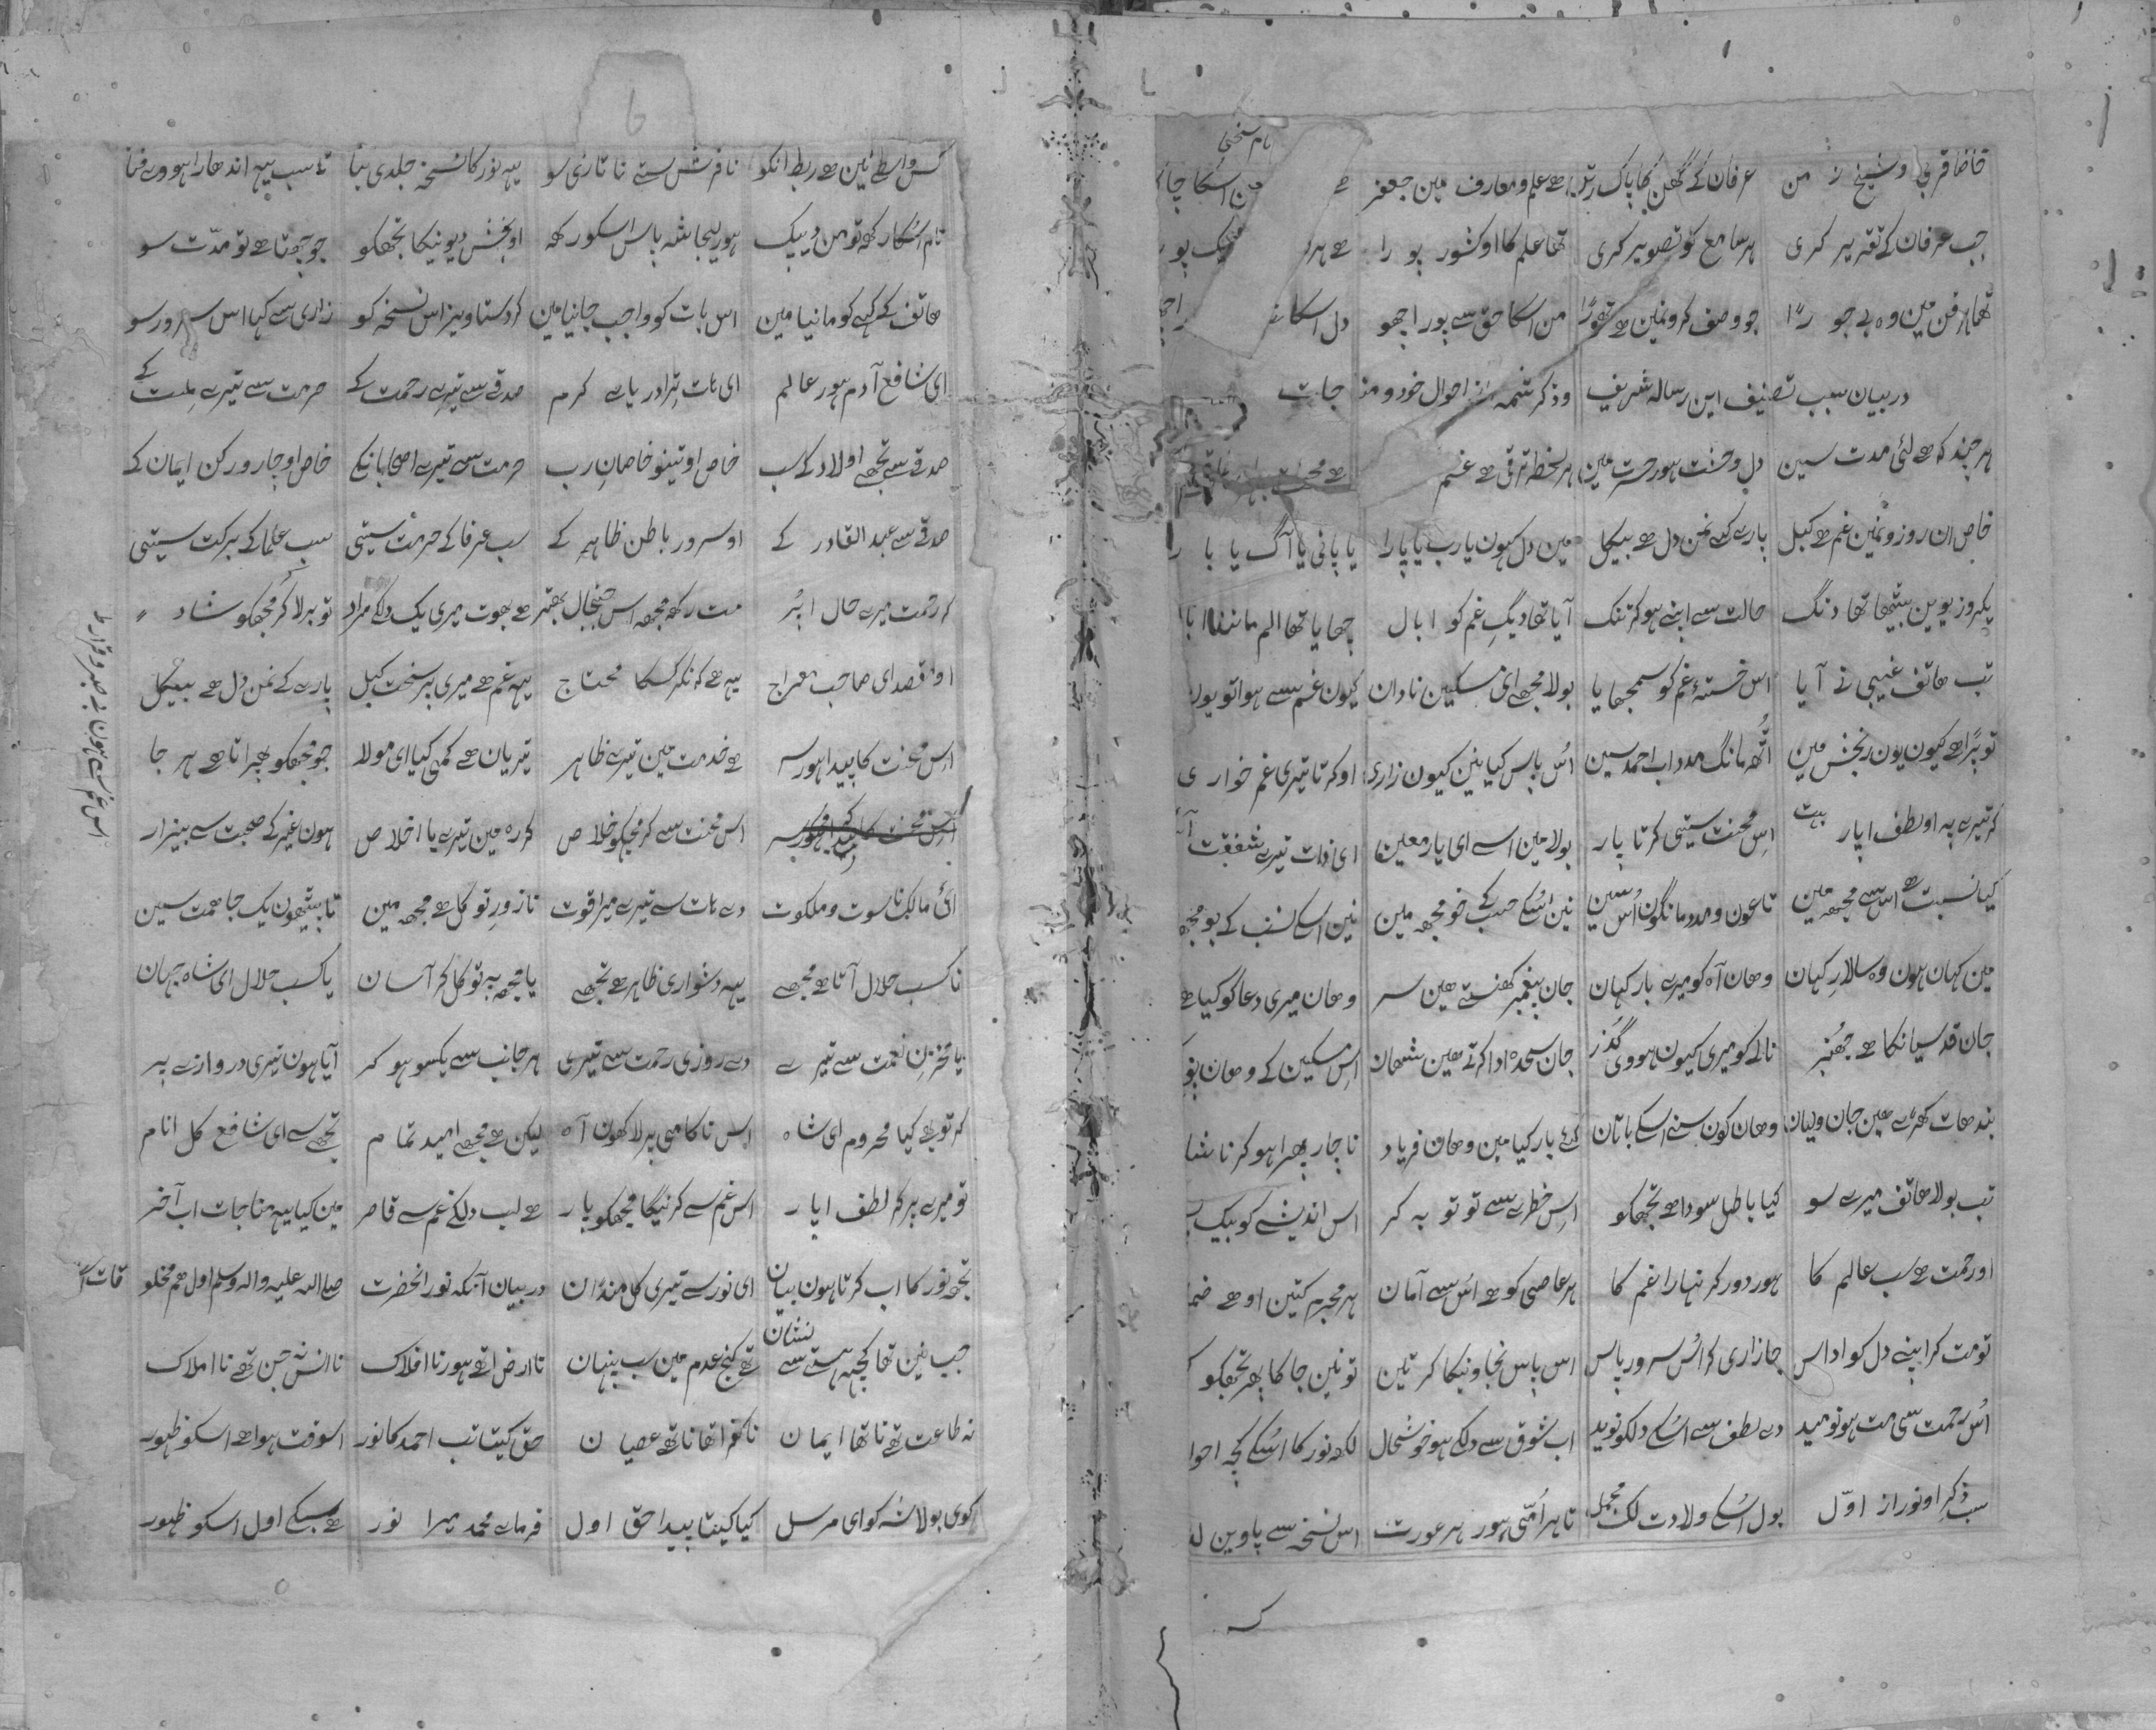 نام سنجی
قاضا قربی و شیخ ز من عرفان کے گھن کا پاک رتن ہے علم و معارف مین جعفر ہے من اسکا
جب عرفان کے تقریر کری ہر سامع کو تصویر کری تھا علم کا او کشور پورا ہے ہر
تھا ہر فن مین وہ بے جوڑا جو وصف کرو نمین ہے تھوڑا من اسکا حق سے پورا اچھو دل اسکا
در بیان سبب تصنیف این رسالہ شریف و ذکر شمہ از احوال خود و مناجات
ہر چند کہ ہے لئی مدت سین دل وحشت ہور حسرت مین ہر لحظہ ترقی ہے غم ہے
خاص ان روزو نمین غم ہے کبل بارے کے نمن دل ہے بیکل مین دل کہون یا رب یا پارا یا پانی یا آگ یا با را
یکروز یوین بیٹھا تھا دنگ حالت سے اپنے ہو کر تنگ آیا تھا دیگِ غم کو ابال چھایا تھا الم مانند
تب ھاتف غیبی نے آیا اس خستۂ غم کو سمجھایا بولا مجھے ای مسکین نادان کیون غم سے ہوا تو یون
تو پڑا ہے کیون یون رنجش مین اُٹھ مانگ مدد اب احمد سین اُس پاس کیا نین کیون زاری او کرتا تیری غم خواری
کر تیرے پہ او لطف اپار اِس محنت ستی کرتا پار بولا مین اسے ای یار معین ای ذات تیرے شفقت
کیا نسبت ہے اس سے مجھ مین تا عون و مدد مانگون اُس سین نین اُسکے حسب کے خو مجھ مین نین اسکے نسب کے بو مجھ
مین کہان ہون وہ سالار کہان وھان آہ کو میرے بار کہان جان پیغمبر گھستے ھین سر وھان میری دعا کو کیا ہے
جان قدسیانکا ہے جھنبر نالے کو میری کیون ہووی گذر جان سجدہ ادا کرتے ھین شھان اس مسکین کے وھان
بند ھات کھڑے ھین جان ولیان وھان کون سنے اسکے باتان کئے بار کیا مین وھان فریاد ناچار پھرا ہو کر ناشا
تب بولا ھاتف میرے سو کیا باطل سودا ہے تجھکو اِس خطرے سے تو توبہ کر اس اندیشے کو بیک
او رحمت ہے سب عالم کا ہور دور کرنہارا غم کا ہر عاصی کو ہے اُس سے آمان ہر مجرم کتین او ہے ضما
تو مت کر اپنے دل کو اداس جا زاری کر اُس سرور پاس اس پاس نجاونیگا کر تین تو نین جا کا پھر تجھکو
اُس رحمت سی مت ہو نومید دے لطف سے اُسکے دلکو نوید اب شوق سے دلکے ہو خوشحال لکھ نور کا اُسکے کچہ احوا
سب ذکر او نور از اوّل بول اُسکے ولادت لک مجمل تا ہر اُمّی ہور ہر عورت اس نسخہ سے پاوین
کس واسطے نین ہے ربط انکو نا فرش ستے نا تازی سو یہہ نور کا نسخہ جلدی بنا تا سب یہہ اندھارا ہووے فنا
نام اسکا رکھ تو من دیپک ہور لیجا شہ پاس اسکو رکھ او بخش دیونیگا تجھکو جو چھتا ہے تو مدّت سو
ھاتف کے کہے کو مانیا مین اس بات کو واجب جانیا مین کر دستاویز اس نسخہ کو زاری سے کہا اس سرور سو
ای شافع آدم ہور عالم ای ذات ترا دریاے کرم صدقے سے تیرے رحمت کے حرمت سے تیرے ملت کے
صدقے سے تجھے اولاد کے سب خاص او تینو خاصانِ رب حرمت سے تیرے اصحابانکے خاص او چارو رکن ایمان کے
صدقے سے عبد القادر کے او سرور باطن ظاہر کے سب عرفا کے حرمت سیتی سب علما کے برکت سیتی
کر رحمت میرے حال اُپر مت رکھ مجھ اس جنجال بھتر ہے بھوت میری یک دلکے مراد تو برلا کر مجھکو شاد
او مقصد ای صاحب معراج یہہ ہے کہ نکر کسکا محتاج یہہ غم ہے میری پر سخت کبل پارے کے نمن دل ہے بیکل
اس غم سے ہون بے صبر و قرار
اس محنت کا پیدا ہور سر ہے خدمت مین تیرے ظاہر تیریان ہے کمی کیا ای مولا جو مجھکو پھراتا ہے ہر جا
اس محنت سے کر مجکو خلاص کر رہ مین تیرے با اخلاص ہون غیر کے صحبت سے بیزار
ائ مالک ناسوت و ملکوت دے ھات سے تیرے میرا قوت نا زور تو کل ہے مجھ مین تا بیٹھون یک جا ہمت سین
نا کسب حلال آتا ہے مجھے یہہ دشواری ظاہر ہے تجھے یا مجھ پہ توکل کر آسان یا کسب حلال ای شاہ جہان
یا مخزن نعمت سے تیرے دے روزی رحمت سے تیری ہر جانب سے یکسو ہو کر آیا ہون تیری دروازے پر
کر تو بھے کیا محروم ای شاہ اِس ناکامی پر لاکھون آہ لیکن ہے مجھے امید تمام تجھ سے ای شافع کل انام
تو میرے پر کر لطف اپار اس غم سے کرنیگا مجھکو پار ہے لب دلکے غم سے قاصر مین کیا یہہ مناجات اب آخر
تجہ نور کا اب کرتا ہون بیان ای نور سے تیری کل منڈان در بیان آنکہ نور انحضرت صلی اللہ علیہ والہ وسلم اول ھمہ مخلو قات است
جب نین تھا کچھ ہستے سے نشان تھے کنج عدم مین سب پنہان نا ارض اتھے ہور نا افلاک نا انس نہ جن تھے نا املاک
نہ طاعت تھے نا تھا ایمان نا کفر اتھا نا تھے عصیان حق کیتا تب احمد کا نور اسوقت ہوا ہے اسکو ظہور
کوی بولا شہ کو ای مرسل کیا کیتا پیدا حق اول فرماے محمد میرا نور ہے سبکے اول اسکو ظہور